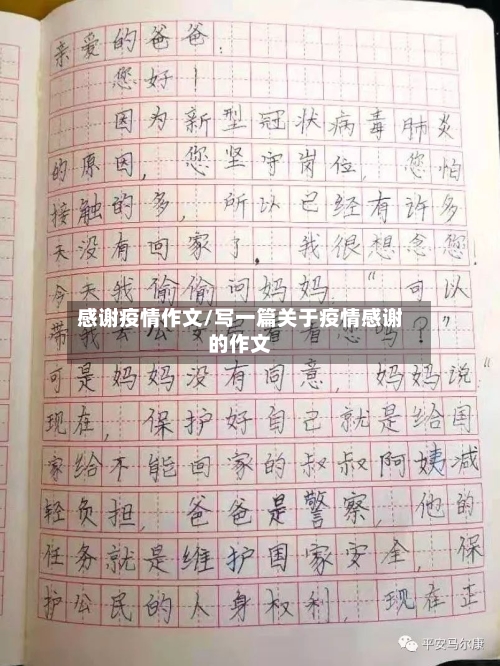 亲爱的爸爸：
您好！
因为新型冠状病毒肺炎
的原因，您坚守岗位，您怕
接触的多，所以已经有许多
天没有回家了。我很想念您！
今天我偷偷问妈妈："可以
带我去公安
看看您吗？"
感谢疫情作文/写一篇关于疫情感谢
的作文
可是妈妈没有同意，妈妈说：
现在，保护好自己就是给国
家给不能回家的叔叔阿姨减
轻负担，爸爸是警察，他的
任务就是维护国家安全，保
护公民的人身权利，现在正
平安马尔康